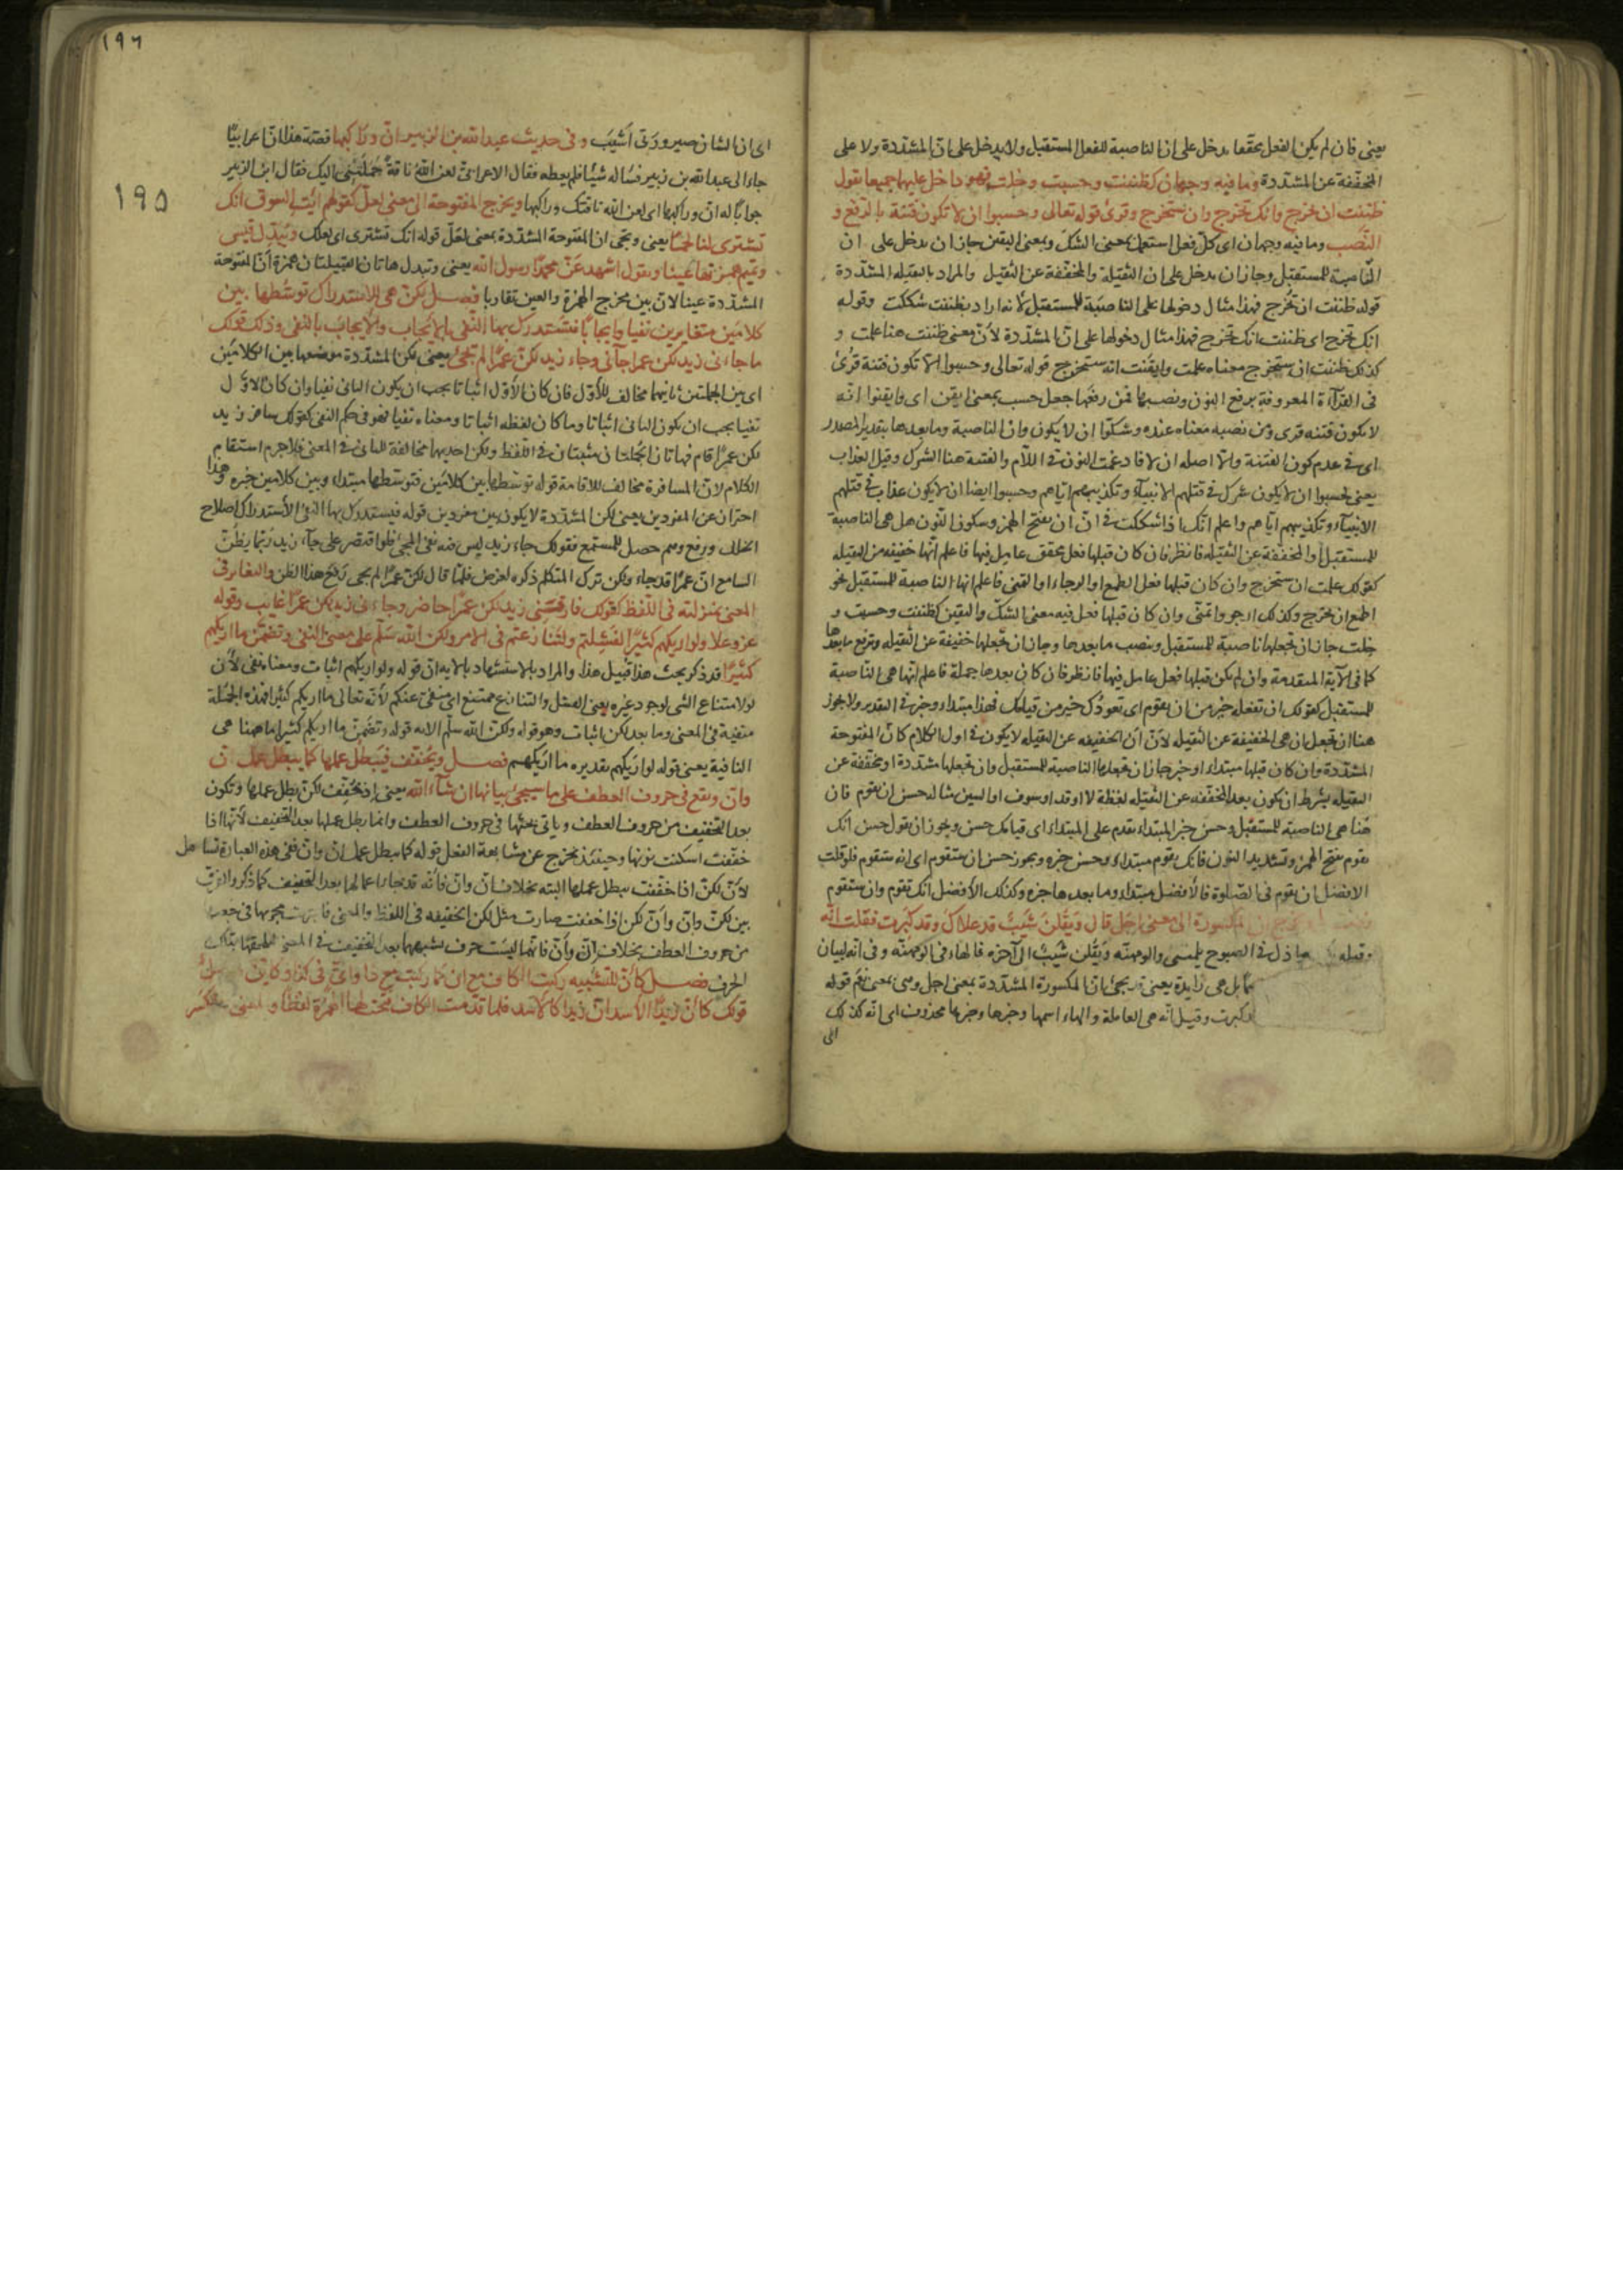 يعنى فان لم يكن الفعل محققا يدخل على ان الناصبة للفعل المستقبل ولا يدخل على انّ المشدّدة ولا على
المخففة عن المشددة وما فيه وجهان كظننت وحسبت وخلت فهو داخل عليها جميعا تقول
ظننت ان تخرج وانك تخرج وان ستخرج وقرئ قوله تعالى وحسبوا ان لا تكون فتنة بالرفع و
النصب وما فيه وجهان اى كلّ فعل استعمل بمعنى الشك وبمعنى اليقين جاز ان يدخل على ان
الناصبة للمستقبل وجاز ان يدخل على ان الثقيلة والمخففة عن الثقيل والمراد بالثقيله المشدّدة
قوله ظننت ان تخرج فهذا مثال دخولها على الناصبة للمستقبل لأنه اراد بظننت شككت وقوله
انك تخرج اى ظننت انك تخرج فهذا مثال دخولها على انّ المشدّدة لأنّ معنى ظننت هنا علمت و
كذلك ظننت ان ستخرج معناه علمت وايقنت انه ستخرج قوله تعالى وحسبوا الّا تكون فتنة قرئ
فى القرآءة المعروفة برفع النون ونصبها فمن رفعها جعل حسب بمعنى ايقن اى وايقنوا انّه
لا يكون فتنه قرى ومن نصبه معناه عنده وشكّوا ان لا يكون وان الناصبة وما بعدها بتقدير المصدر
اى فى عدم كون الفتنة والّا اصله ان لا فادغمت النون فى اللّام والفتنة هنا الشرك وقيل العذاب
يعنى حسبوا ان لا يكون شرك فى قتلهم الانبيآء وتكذيبهم ايّاهم وحسبوا ايضا ان لا يكون عذاب فى قتلهم
الانبيآء وتكذيبهم ايّاهم واعلم انّك اذا شككت فى انّ ان بفتح الهمز وسكون النّون هل هى الناصبة
للمستقبل او المخففة عن الثقيله فانظر فان كان قبلها فعل محقق عامل فيها فاعلم انّها خفيفة من الثقيله
كقولك علمت ان ستخرج وان كان قبلها فعل الطمع او الرجاء او التمنى فاعلم انها الناصبة للمستقبل نحو
اطمع ان تخرج وكذلك ارجو واتمنّى وان كان قبلها فعل فيه معنى الشكّ واليقين كظننت وحسبت و
خلت جاز ان تجعلها ناصبة للمستقبل وينصب ما بعدها وجاز ان تجعلها خفيفة عن الثقيله وترفع ما بعدها
كما فى الآية المتقدمة وان لم يكن قبلها فعل عامل فيها فانظر فان كان بعدها جملة فاعلم انها هى الناصبة
للمستقبل كقولك ان تفعله خير من ان يقوم اى تعودك خير من قيامك فهذا مبتداء وخبر فى التقدير ولا يجوز
هنا ان تجعل ان هى الخفيفة عن الثقيله لأنّ انّ الخفيفه عن الثقيله لا يكون فى اول الكلام كأن المفتوحة
المشدّدة وان كان قبلها مبتداء او خبر جاز ان تجعلها الناصبة للمستقبل وان تجعلها مشدّدة او مخففة عن
الثقيله بشرط ان يكون بعد المخففه عن الثقيله لفظة لا او قد او سوف او السين مثاله حسن ان تقوم فان
هنا هى الناصبة للمستقبل وحسن خبر المبتداء تقدم على المبتداء اى قيامك حسن ويجوز ان تقول حسن انك
تقوم بفتح الهمز وتشديد النون فانك تقوم مبتداء وحسن خبره ويجوز حسن ان ستقوم اى انه ستقوم فلو قلت
الافضل ان تقوم فى الصّلوة فالأفضل مبتداء وما بعدها خبره وكذلك الأفضل انك تقوم وان ستقوم
المكسورة الى معنى اجل قال وَيَقُلنَ شَيبٌ قد علاك وقد كبرت فقلت انّه
وقبله فى الصبوح يلمننى والومهنّه ويقلن شيب الى آخره فالهاء فى الومهنّه وفى انّه لبيان
بل هى زايدة يعنى تجئ انّ المكسورة المشدّدة بمعنى اجل وهى بمعنى نعم قوله
كبرت وقيل انّه هى العاملة والهاء اسمها وخبرها محذوف اى انّه كذلك
اى
١٩٦
١٩٥
اى انّ الشان صيرورتى اشيب وفى حديث عبد الله بن الزبير انّ وراكبها قصة هذا انّ اعرابيّا
جاء الى عبد الله بن زبير فساله شيئا فلم يعطه فقال الاعرابى لعن الله ناقة حملتنى اليك فقال ابن الزبير
جوابا له انّ وراكبها اى لعن الله ناقتك وراكبها ويخرج المفتوحة الى معنى لعل كقولهم ائت السوق انك
تشترى لنا لحمًا يعنى وتجى ان المفتوحة المشدّدة بمعنى لعلّ قوله انك تشترى اى لعلك وتبدل قيس
وتميم همزتها عينا وتقول اشهد عنّ محمدًا رسول الله يعنى وتبدل هاتان القبيلتان همزة انّ المفتوحة
المشدّدة عينا لانّ بين مخرج الهمزة والعين تقاربا فصل لكنّ هى للاستدراك توسّطها بين
كلامين متغايرين نفيا وايجابًا فتستدرك بها النّفى بالايجاب والايجاب بالنفى وذلك قولك
ما جاءنى زيد لكن عمرا جآنى وجاء زيد لكنّ عمرًا لم تجئ يعنى لكن المشدّدة موضعها بين الكلامين
اى بين الجملتين ثانيهما مخالف للأوّل فان كان الأوّل اثباتا يجب ان يكون الثانى نفيا وان كان الاوّل
نفيا يجب ان يكون الثانى اثباتا وما كان لفظه اثباتا ومعناه نفيا فهو فى حكم النفى كقولك سافر زيد
لكن عمرًا قام فهاتان الجملتان مثبتتان فى اللّفظ ولكن احديهما مخالفة للثانى فى المعنى فلا جرم استقام
الكلام لانّ المسافرة مخالف للاقامة قوله توسّطها بين كلامين فتوسّطها مبتداء وبين كلامين خبره وهذا
احتراز عن المفردين يعنى لكن المشدّدة لا يكون بين مفردين قوله فيستدرك بها النفى الاستدراك اصلاح
الخلل ورفع وهم حصل للمستمع فقولك جاء زيد ليس فيه نفى المجئ فلو اقتصر على جآء زيد ربّما يظنّ
السامع انّ عمرًا قد جاء ولكن ترك المتكلم ذكره لغرض فلمّا قال لكنّ عمرًا لم يجى رفع هذا الظن والتغاير فى
المعنى بمنزلته فى اللّفظ كقولك فارقنى زيد لكن عمرًا حاضر وجاءنى زيد لكن عمرًا غايب وقوله
عزّ وعلا ولو اريكهم كثيرًا لفشلتم ولتنازعتم فى الامر ولكن الله سلّم على معنى النفى وتضمّن ما اريكهم
كثيرًا قد ذكر بحث هذا قبيل هذا والمراد بالاستشهاد بالايه انّ قوله ولو اريكهم اثبات ومعناه نفى لأنّ
لو لامتناع الشى لوجود غيره يعنى الفشل والتنازع ممتنع اى منفى عنكم لأنّه تعالى ما اريكم كثيرا فهذه الجملة
منفية فى المعنى وما بعد لكن اثبات وهو قوله ولكن الله سلّم الايه قوله وتضمّن ما اريكم كثيرا ما ههنا هى
النافية يعنى قوله لو اريكهم تقديره ما اريكهم فصل ويخفّف فيبطل عملها كما يبطل عمل انّ
وانّ وتقع فى حروف العطف على ما سيجئ بيانها ان شآء الله يعنى اذ تخفّف لكنّ بطل عملها وتكون
بعد التخفيف من حروف العطف وياتى بحثها فى حروف العطف وانما بطل عملها بعد التخفيف لأنّها اذا
خففت اسكنت نونها وحينئذ يخرج عن مشابهة الفعل قوله كما يبطل عمل انّ وانّ ففى هذه العبارة تساهل
لأنّ لكنّ اذا خففت يبطل عملها البته بخلاف انّ وانّ فانّه قد يجاز اعمالها بعد التخفيف كما ذكر والفرق
بين لكنّ وانّ وأنّ لكن اذا خففت صارت مثل لكن الخفيفه فى اللفظ والمعنى
من حروف العطف بخلاف انّ وأنّ فانّهما ليست حرف يشبههما بعد التخفيف فى المعنى
الحرف فصل كأنّ للتشبيه ركبت الكاف مع انّ كما ركبت مع ذا واىّ فى كذا وكاين
قولك كأنّ زيدًا الأسد انّ زيدا كالأسد فلما قدّمت الكاف فتحت لها الهمزة لفظًا والمعنى على الكسر